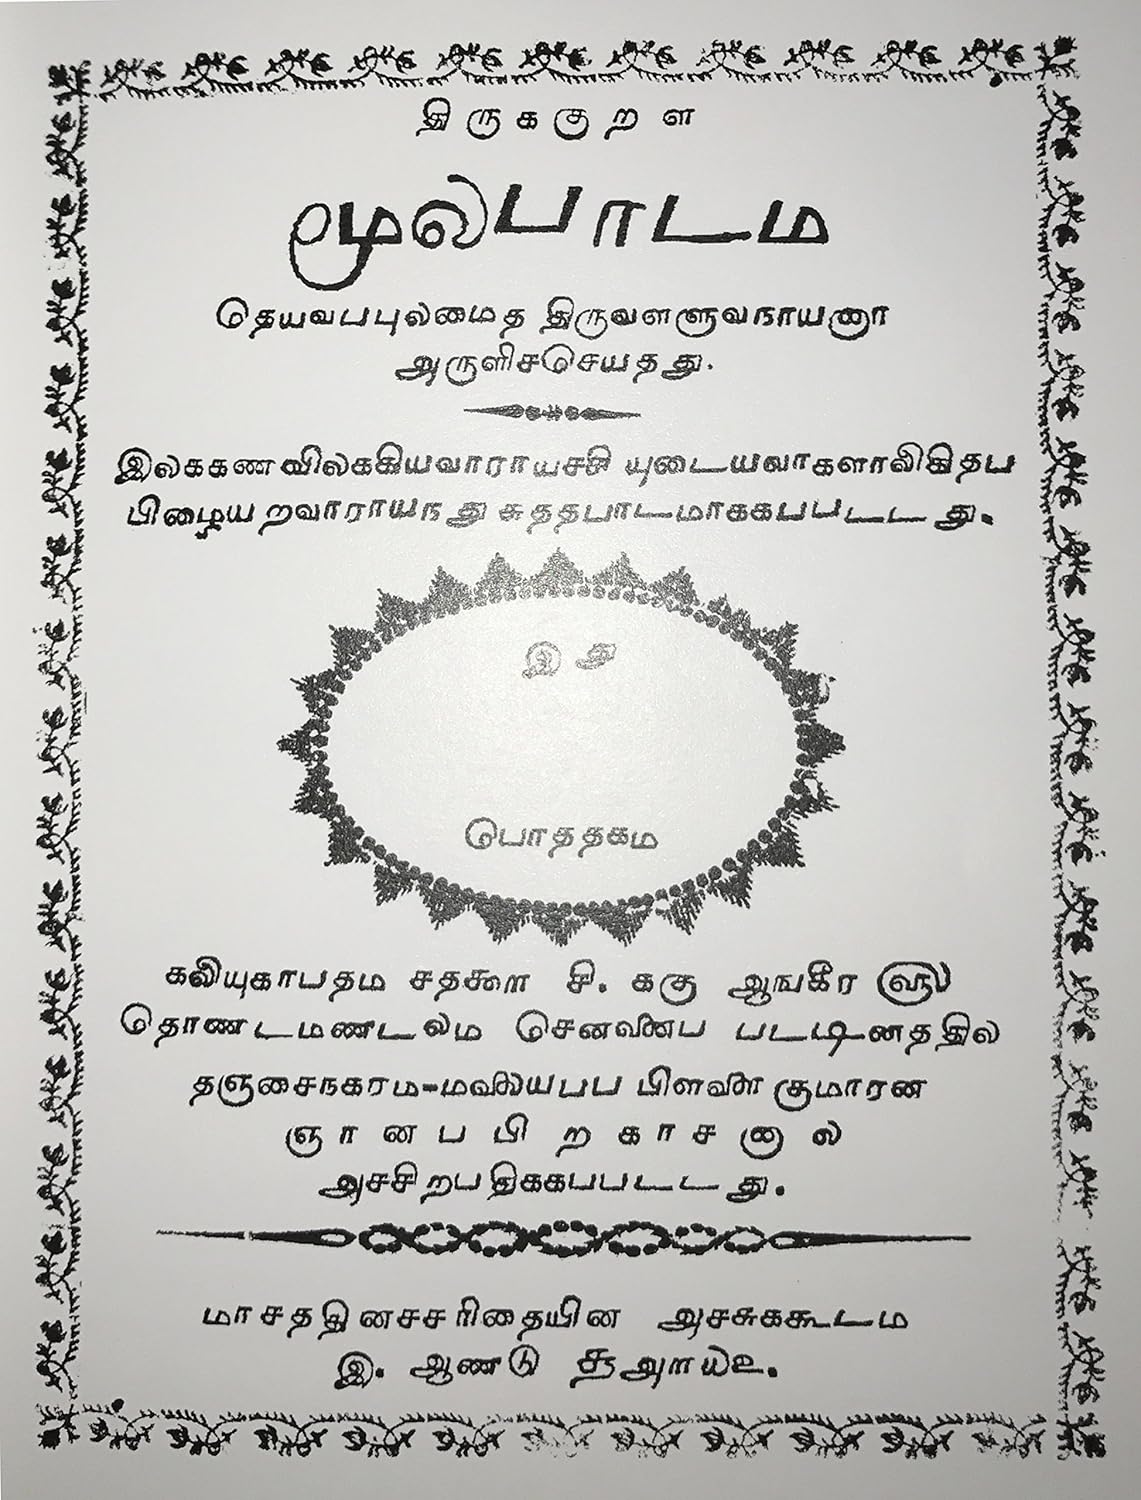 திருககுறள
மூலபாடம
தெயவபபுலமைத திருவளளுவநாயனா
அருளிசசெயதது.
இலககணவிலககியவாராயசசி யுடையவாகளாலிகிதப
பிழையறவாராயநது சுததபாடமாககபபடடது.
இது
பொததகம
கலியுகாபதம ௪௲௯௱௰௩ ஆஙகீர ௵
தொணடமணடலம செனனைப படடினததில
தஞசைநகரம-மலையபப பிளளை குமாரன
ஞானபபிறகாசனால
அசசிறபதிககபபடடது.
மாசததினசசரிதையின அசசுககூடம
இ. ஆணடு ௲௮௱௰௨.